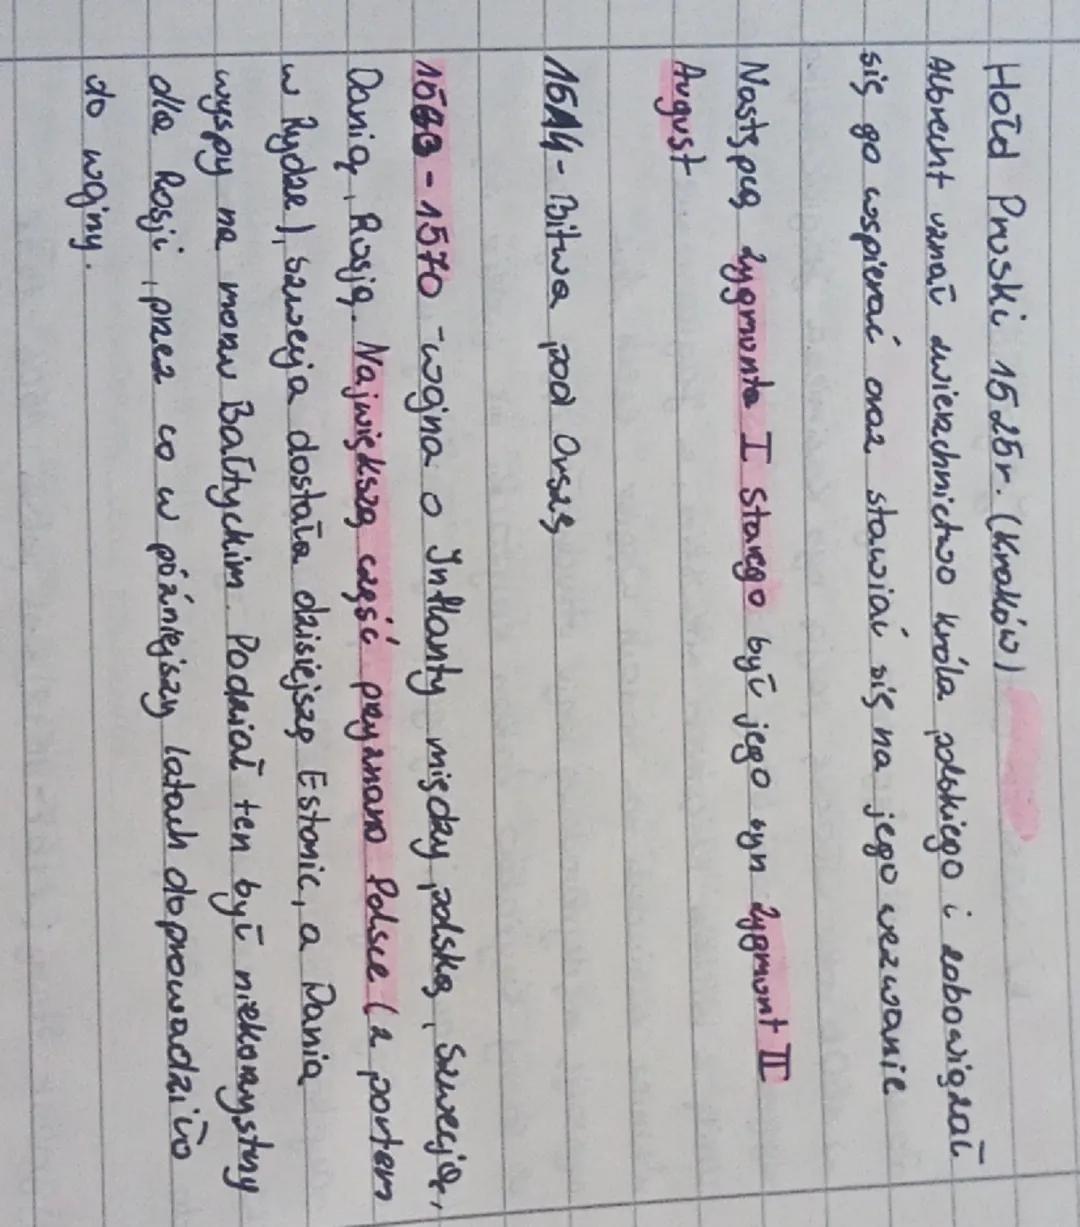 Hołd Pruski 1525r. (Kraków)
Albrecht uznał zwierzchnictwo króla polskiego i zobowiązał
się go wspierać oraz stawiać się na jego wezwanie
Następcą Zygmunta I Starego był jego syn Zygmunt II
August
1514 - Bitwa pod Orszą
1563 - 1570 - wojna o Inflanty między polską, Szwecją,
Danią, Rosją. Największą część przyznano Polsce (z portem
w Rydze), szwecja dostała dzisiejszą Estonię, a Dania
wyspy na morzu Bałtyckim. Podział ten był niekorzystny
dla Rosji, przez co w późniejszy latach doprowadziło
do wojny.